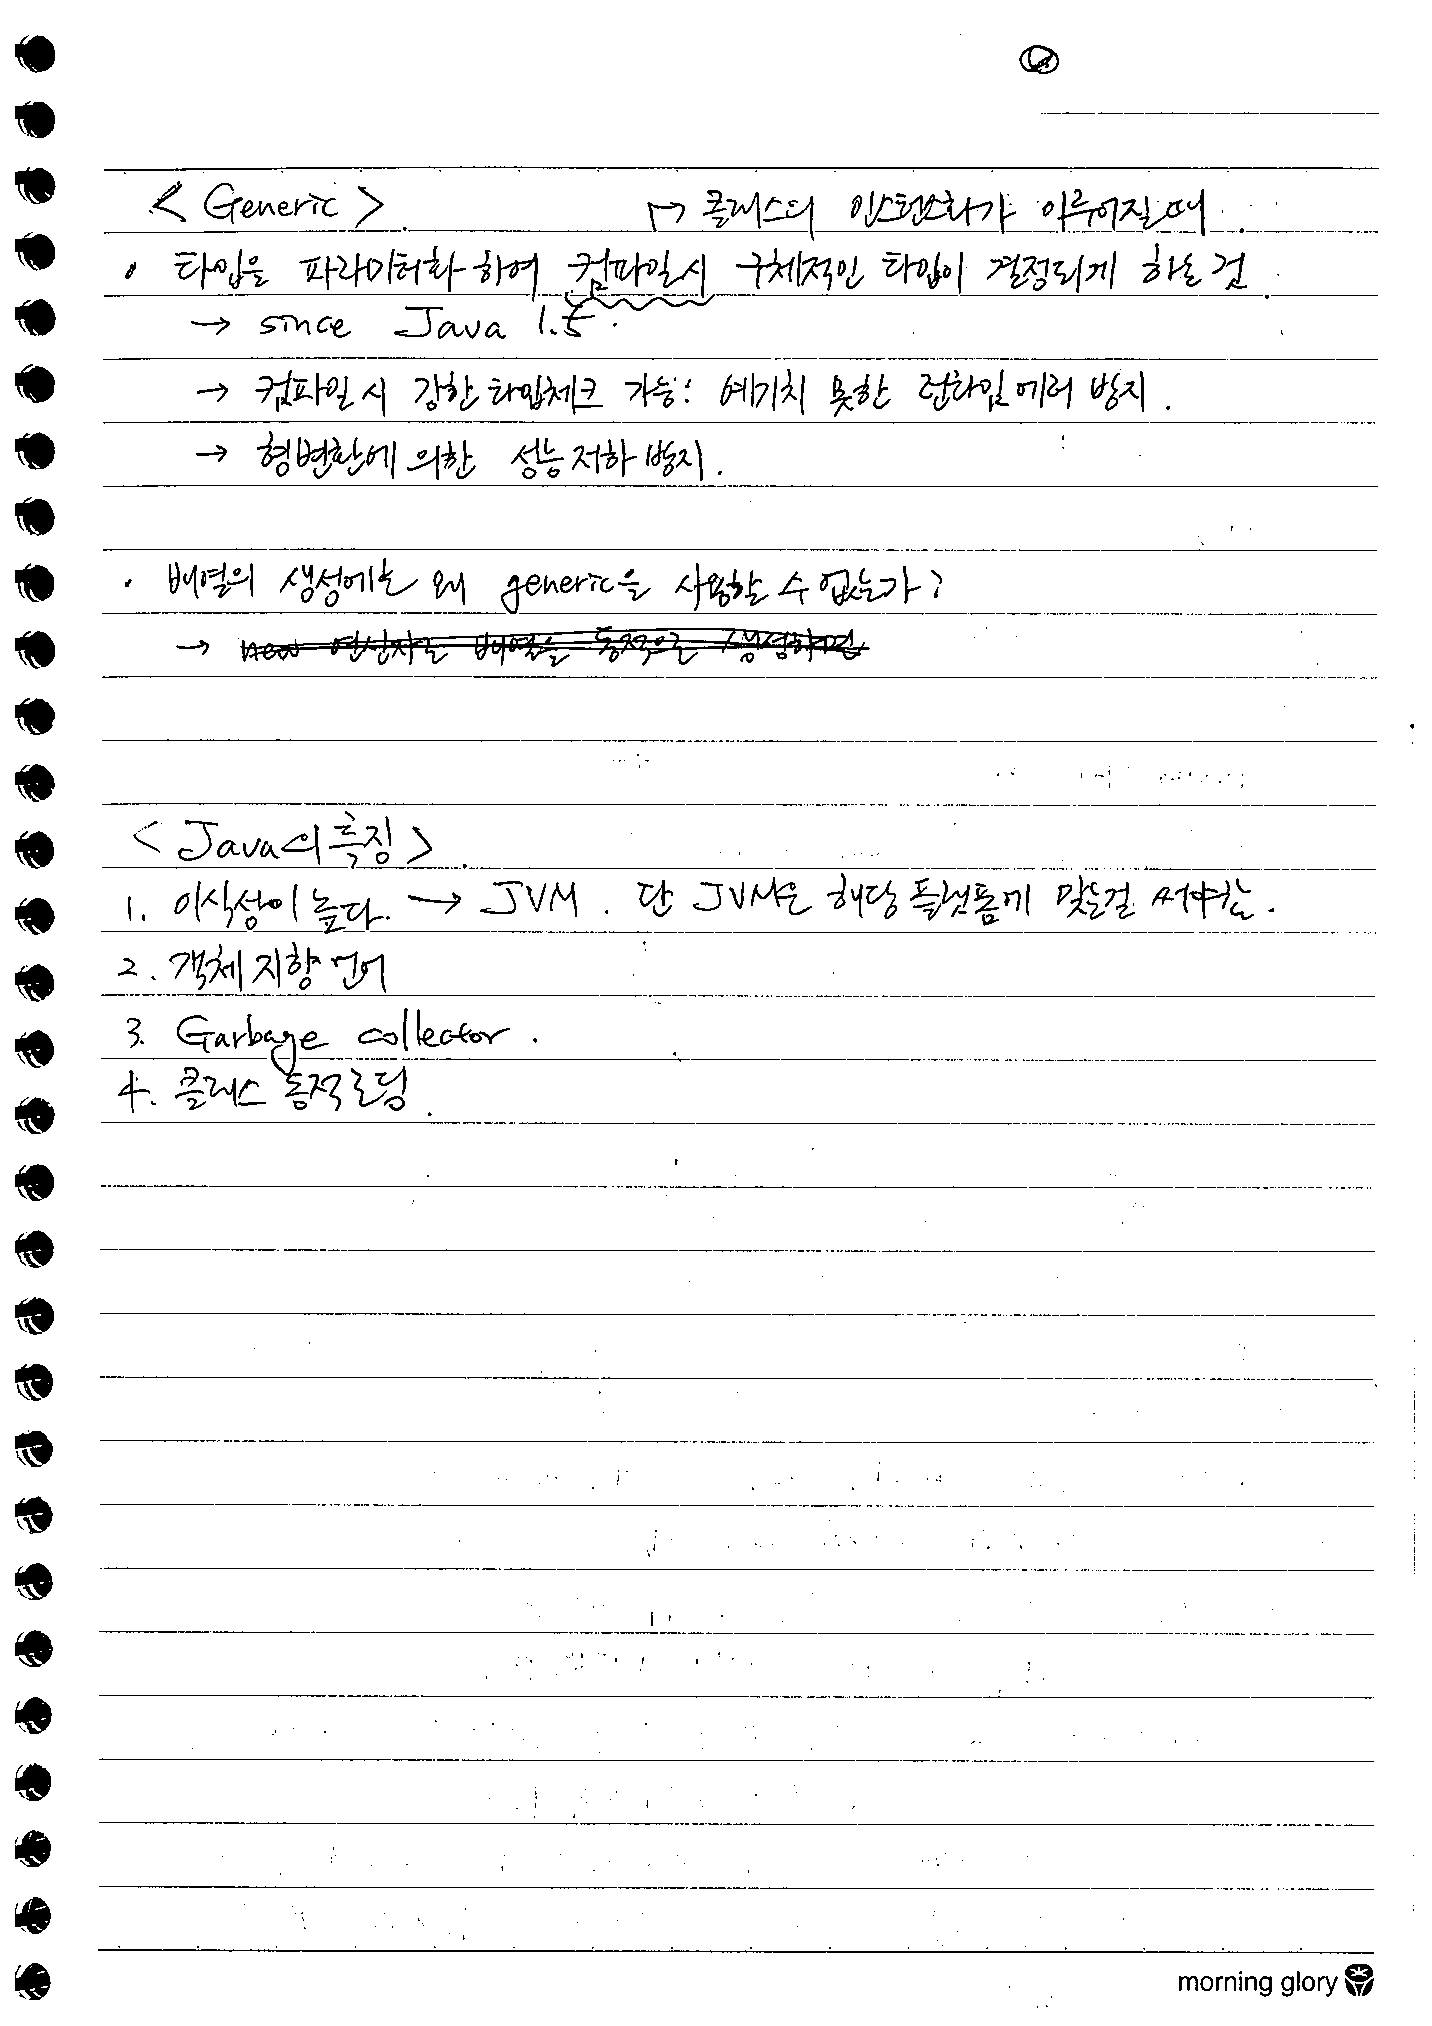 < Generic >     ↱ 클래스의 인스턴스화가 이루어질 때.
• 타입을 파라미터화 하여 컴파일시 구체적인 타입이 결정되게 하는 것.
→ since Java 1.5.
→ 컴파일 시 강한 타입체크 가능: 예기치 못한 런타임에러 방지.
→ 형변환에 의한 성능저하 방지.
• 배열의 생성에는 왜 generic을 사용할 수 없는가?
→ new 연산자는 배열을 동적으로 생성하면
< Java의 특징 >.
1. 이식성이 높다. → JVM. 단 JVM은 해당 플랫폼에 맞는걸 써야함.
2. 객체 지향 언어
3. Garbage collector.
4. 클래스 동적로딩.
morning glory